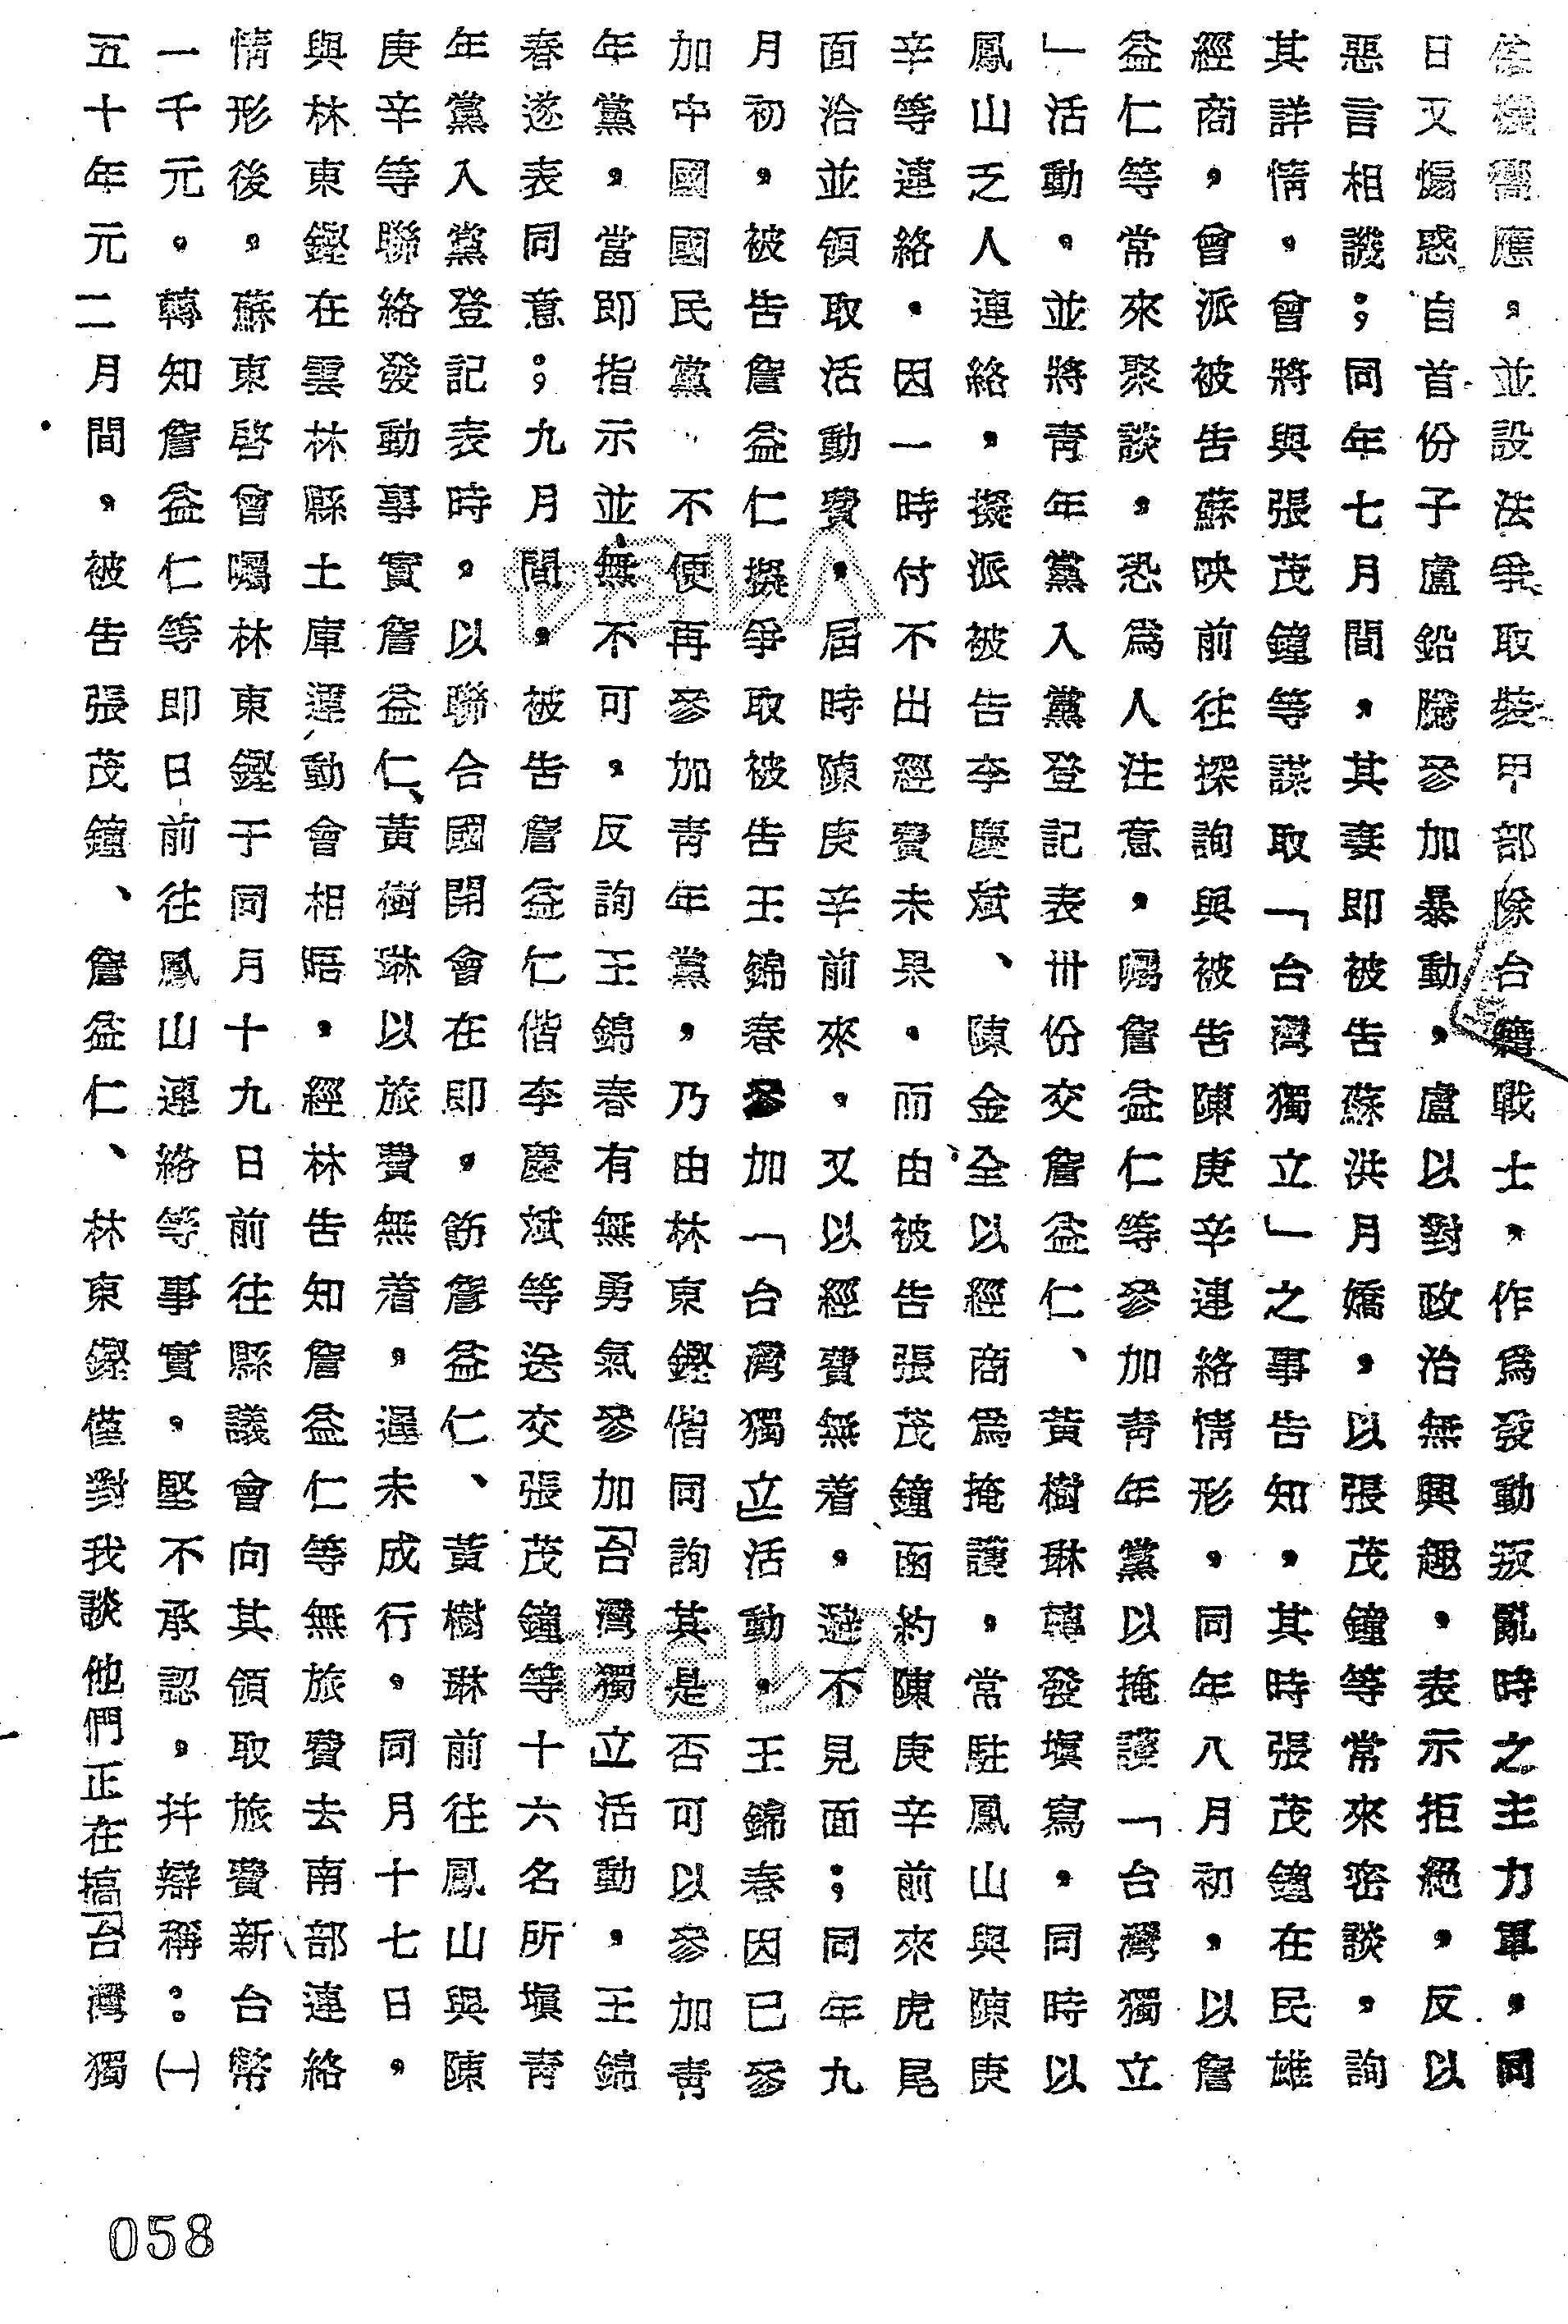 機響應。並設法爭取裝甲部隊台籍戰士，作為發動叛亂時之主力軍，同
日又煽惑自首份子盧鉛騰參加暴動，盧以對政治無興趣，表示拒絕，反以
惡言相譏；同年七月間，其妻即被告蘇洪月嬌，以張茂鐘等常來密談，詢
其詳情。曾將與張茂鐘等謀取「台灣獨立」之事告知，其時張茂鐘在民雄
經商，曾派被告蘇映前往探詢與被告陳庚辛連絡情形。同年八月初，以詹
益仁等常來聚談，恐為人注意，囑詹益仁等參加青年黨，以掩護「台灣獨立
」活動。並將青年黨入黨登記表，卅份交詹益仁、黃樹琳轉發塡寫。同時以
鳳山乏人連絡，擬派被告李慶斌、陳金全以經商為掩護，常駐鳳山與陳庚
辛等連絡。因一時付不出經費未果。而由被告張茂鐘函約陳庚辛前來虎尾
面洽並領取活動費，屆時陳庚辛前來。又以經費無着。避不見面；同年九
月初，被告詹益仁擬爭取被告王錦春參加「台灣獨立」活動，王錦春因已參
加中國國民黨、不便再參加青年黨，乃由林東鏗偕同詢其是否可以參加青
年黨，當即指示並無不可，反詢王錦春有無勇氣參加「台灣獨立」活動，王錦
春遂表同意；九月間，被告詹益仁偕李慶斌等送交張茂鐘等十六名所塡青
年黨入黨登記表時，以聯合國開會在即，飭詹益仁、黃樹琳前往鳳山與陳
庚辛等聯絡發動事實詹益仁、黃樹琳以旅費無着，遲未成行。同月十七日，
與林東鏗在雲林縣土庫運動會相晤，經林告知詹益仁等無旅費去南部連絡
情形後，蘇東啓曾囑林東鏗于同月十九日前往縣議會向其領取旅費新台幣
一千元。轉知詹益仁等即日前往鳳山連絡等事實，堅不承認，并辯稱：㈠
五十年元二月間，被告張茂鐘、詹益仁、林東鏗僅對我談他們正在搞「台灣獨
058